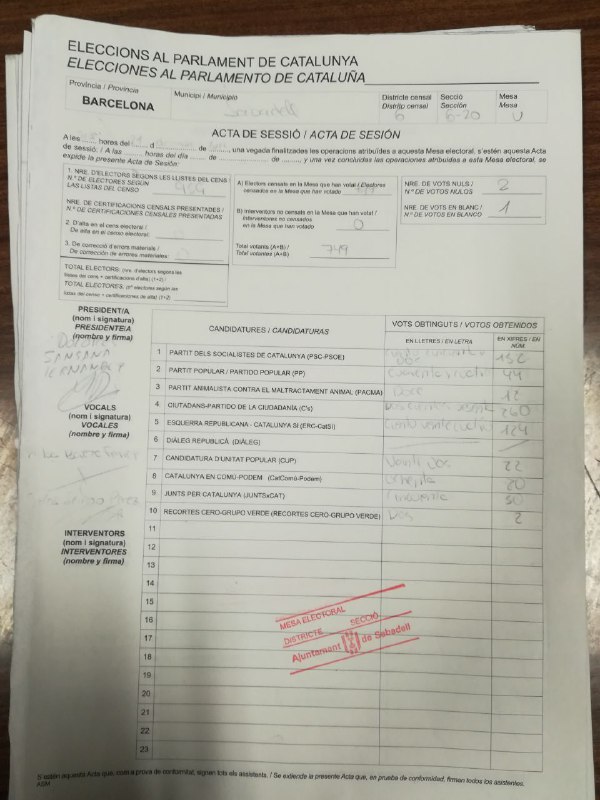 ELECCIONS AL PARLAMENT DE CATALUNYA
ELECCIONES AL PARLAMENTO DE CATALUÑA
Província / Provincia
BARCELONA
Municipi / Municipio
Districte censal
Distrito censal
6
Secció
Sección
6-20
Mesa
Mesa
U
ACTA DE SESSIÓ / ACTA DE SESIÓN
A les hores del d de una vegada finalitzades les operacions atribuïdes a aquesta Mesa electoral, s'estén aquesta Acta
de sessió; / A las horas del día de de y una vez concluidas las operaciones atribuidas a esta Mesa electoral, se
expide la presente Acta de Sesión:
1. NRE. D'ELECTORS SEGONS LES LLISTES DEL CENS
N.º DE ELECTORES SEGÚN
LAS LISTAS DEL CENSO
NRE. DE CERTIFICACIONS CENSALS PRESENTADES /
N.º DE CERTIFICACIONES CENSALES PRESENTADAS
2. D'alta en el cens electoral /
De alta en el censo electoral:
3. De correcció d'errors materials /
De corrección de errores materiales:
TOTAL ELECTORS: (nre. d'electors segons les
llistes del cens + certificacions d'alta) (1+2) /
TOTAL ELECTORES: (nº electores según las
listas del censo + certificaciones de alta) (1+2)
A) Electors censats en la Mesa que han votat / Electores
censados en la Mesa que han votado
B) Interventors no censats en la Mesa que han votat /
Interventores no censados
en la Mesa que han votado
0
Total votants (A+B) /
Total votantes (A+B)
749
NRE. DE VOTS NULS /
N.º DE VOTOS NULOS
2
NRE. DE VOTS EN BLANC /
N.º DE VOTOS EN BLANCO
1
PRESIDENT/A
(nom i signatura)
PRESIDENTE/A
(nombre y firma)
VOCALS
(nom i signatura)
VOCALES
(nombre y firma)
INTERVENTORS
(nom i signatura)
INTERVENTORES
(nombre y firma)
CANDIDATURES / CANDIDATURAS
VOTS OBTINGUTS / VOTOS OBTENIDOS
EN LLETRES / EN LETRA
EN XIFRES / EN
NÚM.
1 PARTIT DELS SOCIALISTES DE CATALUNYA (PSC-PSOE) 152
2 PARTIT POPULAR / PARTIDO POPULAR (PP) 44
3 PARTIT ANIMALISTA CONTRA EL MALTRACTAMENT ANIMAL (PACMA) Doce 12
4 CIUTADANS-PARTIDO DE LA CIUDADANÍA (C's) 260
5 ESQUERRA REPUBLICANA - CATALUNYA SÍ (ERC-CatSí)
6 DIÀLEG REPUBLICÀ (DIÀLEG)
7 CANDIDATURA D'UNITAT POPULAR (CUP) 22
8 CATALUNYA EN COMÚ-PODEM (CatComú-Podem)
9 JUNTS PER CATALUNYA (JUNTSxCAT) Cincuenta 50
10 RECORTES CERO-GRUPO VERDE (RECORTES CERO-GRUPO VERDE) Dos 2
11
12
13
14
15
16
17
18
19
20
21
22
23
MESA ELECTORAL
DISTRICTE SECCIÓ
Ajuntament de Sabadell
S'estén aquesta Acta que, com a prova de conformitat, signen tots els assistents. / Se extiende la presente Acta que, en prueba de conformidad, firman todos los asistentes.